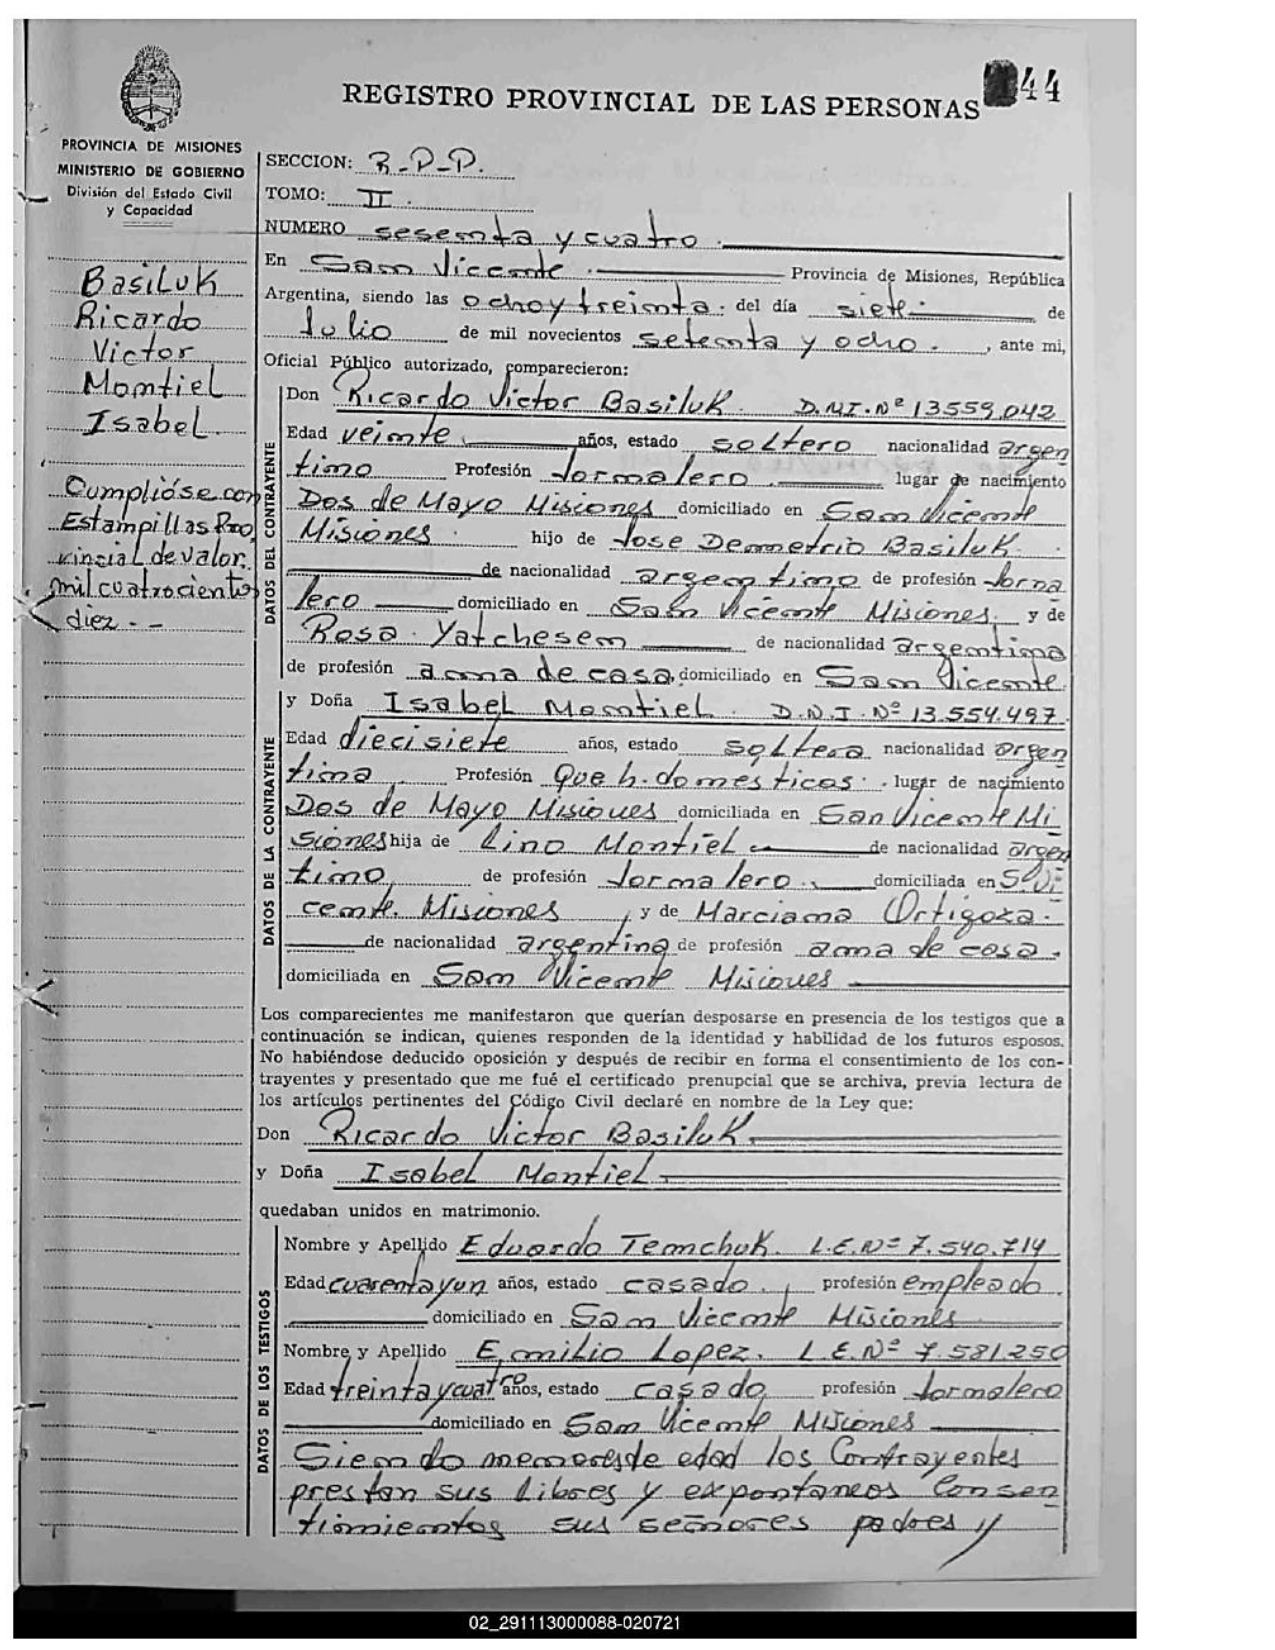 44
REGISTRO PROVINCIAL DE LAS PERSONAS
PROVINCIA DE MISIONES
MINISTERIO DE GOBIERNO
División del Estado Civil
y Capacidad
Basiluk
Ricardo
Victor
Montiel
Isabel.
Cumplióse con
Estampillas Pro
vincial de valor.
mil cuatrociento
diez. - -
SECCION: R-P-P.
TOMO: II.
NUMERO sesenta y cuatro.
En San Vicente. Provincia de Misiones, República
Argentina, siendo las ocho y treinta. del día siete de
Julio de mil novecientos setenta y ocho. , ante mi,
Oficial Público autorizado, comparecieron:
DATOS DEL CONTRAYENTE
Don Ricardo Victor Basiluk. D.N.I. Nº 13559.042
Edad veinte, años, estado soltero nacionalidad argen
tino Profesión Jornalero. lugar de nacimiento
Dos de Mayo Misiones domiciliado en San Vicente
Misiones. hijo de Jose Demetrio Basiluk.
de nacionalidad argentino de profesión Jorna
lero domiciliado en San Vicente Misiones. y de
Rosa Yatchesen de nacionalidad argentina
de profesión ama de casa, domiciliado en San Vicente.
DATOS DE LA CONTRAYENTE
y Doña Isabel Montiel. D.N.I. Nº 13.554.497.
Edad diecisiete años, estado soltera nacionalidad argen
tina Profesión Que h. domesticos. lugar de nacimiento
Dos de Mayo Misiones domiciliada en San Vicente Mi
siones hija de Lino Montiel de nacionalidad argen
tino, de profesión Jornalero. domiciliada en S. Vi
cente. Misiones, y de Marciana Ortigoza.
de nacionalidad argentina de profesión ama de casa.
domiciliada en San Vicente Misiones
Los comparecientes me manifestaron que querían desposarse en presencia de los testigos que a
continuación se indican, quienes responden de la identidad y habilidad de los futuros esposos.
No habiéndose deducido oposición y después de recibir en forma el consentimiento de los con-
trayentes y presentado que me fué el certificado prenupcial que se archiva, previa lectura de
los artículos pertinentes del Código Civil declaré en nombre de la Ley que:
Don Ricardo Victor Basiluk.
y Doña Isabel Montiel.
quedaban unidos en matrimonio.
DATOS DE LOS TESTIGOS
Nombre y Apellido Eduardo Temchuk. L.E.Nº 7.540.714
Edad cuarenta y un años, estado casado, profesión empleado.
domiciliado en San Vicente Misiones
Nombre y Apellido Emilio Lopez. L.E.Nº 7.581.250
Edad treinta y cuatro años, estado casado profesión Jornalero
domiciliado en San Vicente Misiones
Siendo menores de edad los Contrayentes
prestan sus libres y expontaneos Consen
timientos sus señores padres y
02_291113000088-020721